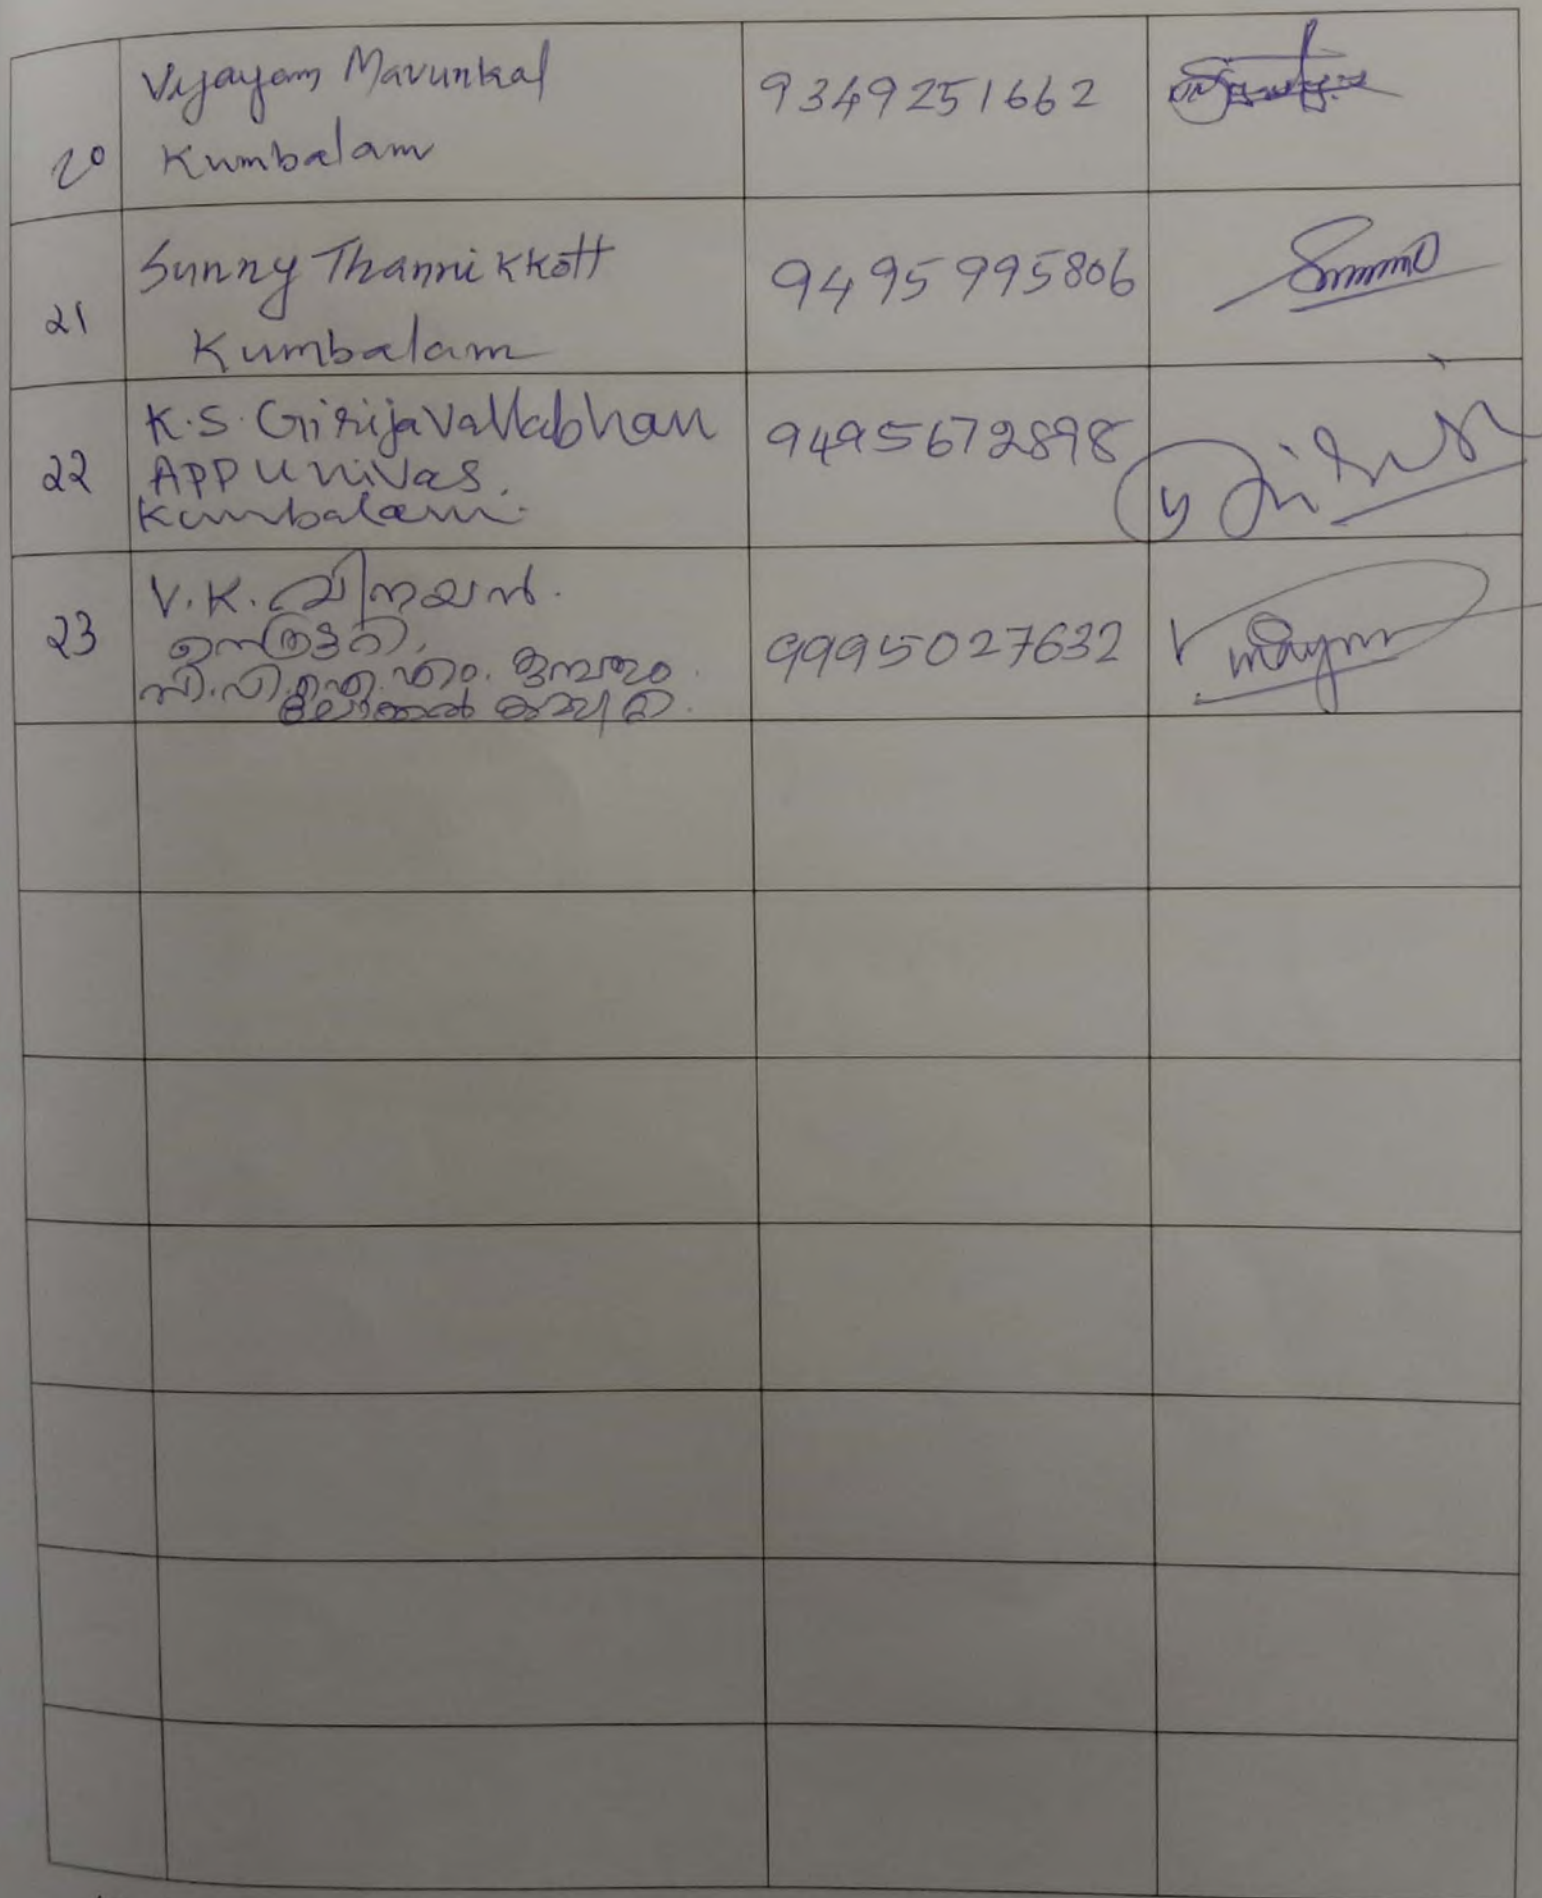 20
Vijayan Mavunkal
Kumbalam
9349251662
21
Sunny Thannikkott
Kumbalam
9495995806
22
K.S. Girijavallabhan
Appu nivas.
Kumbalam.
9495672898
23
V.K. വിനയൻ.
സി.പി.ഐ.എം. കുമ്പളം
ലോക്കൽ കമ്മറ്റി.
9995027632